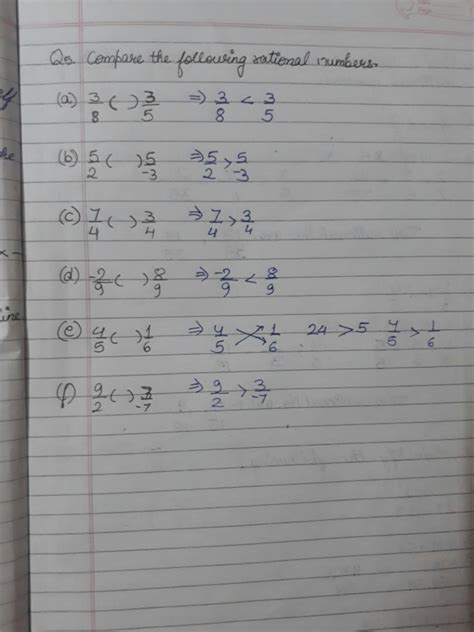 Q5. Compare the following rational numbers.
(a) 3/8 ( ) 3/5 ⇒ 3/8 < 3/5
(b) 5/2 ( ) 5/-3 ⇒ 5/2 > 5/-3
(c) 7/4 ( ) 3/4 ⇒ 7/4 > 3/4
(d) -2/9 ( ) 8/9 ⇒ -2/9 < 8/9
(e) 4/5 ( ) 1/6 ⇒ 4/5 1/6 24 > 5 4/5 > 1/6
(f) 9/2 ( ) 3/-7 ⇒ 9/2 > 3/-7